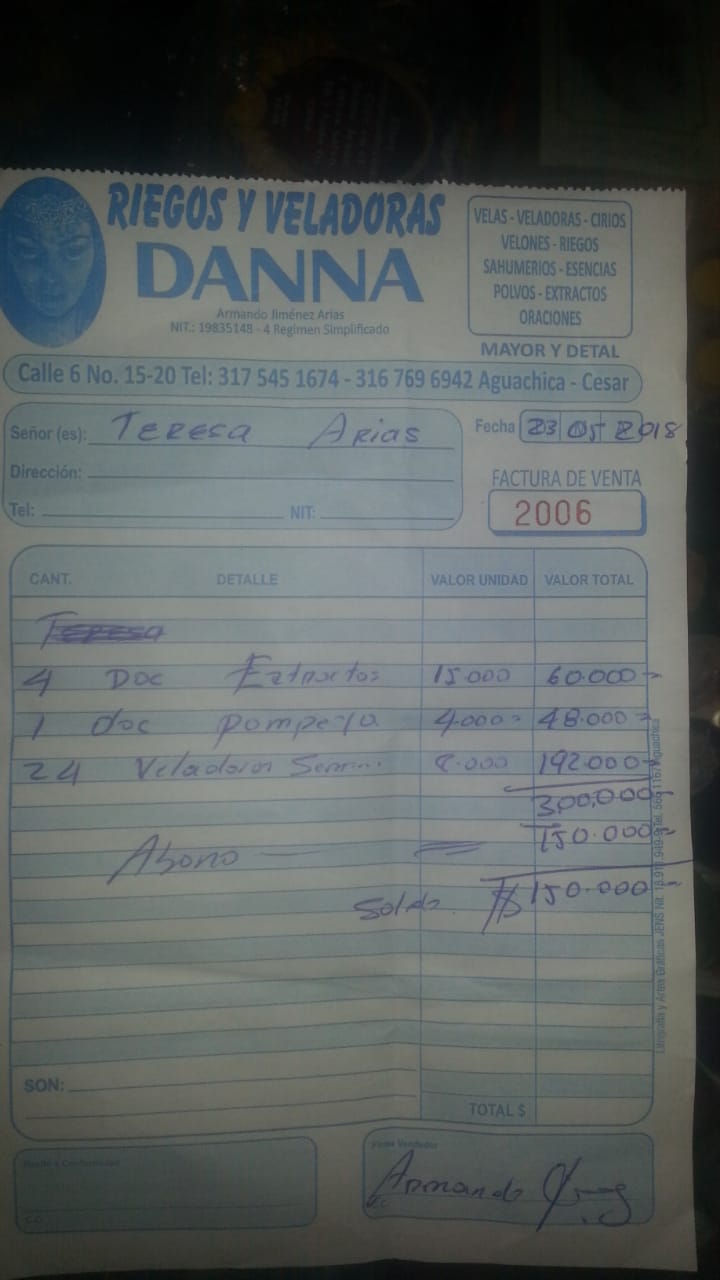 RIEGOS Y VELADORAS
DANNA
Armando Jiménez Arias
NIT.: 19835148 - 4 Regimen Simplificado
VELAS - VELADORAS - CIRIOS
VELONES - RIEGOS
SAHUMERIOS - ESENCIAS
POLVOS - EXTRACTOS
ORACIONES
MAYOR Y DETAL
Calle 6 No. 15-20 Tel: 317 545 1674 - 316 769 6942 Aguachica - Cesar
Señor (es): Teresa Arias
Fecha 23 05 2018
Dirección:
Tel: NIT:
FACTURA DE VENTA
2006
CANT. DETALLE VALOR UNIDAD VALOR TOTAL
Teresa
4 Doc Extractos 15.000 60.000
1 doc pompeya 4.000 48.000
24 Veladoras 8.000 192.000
300,000
Abono 150.000
Saldo $ 150.000
SON:
TOTAL $
Firma Vendedor
Armando
Litografía y Artes Gráficas JENS Nit. Aguachica